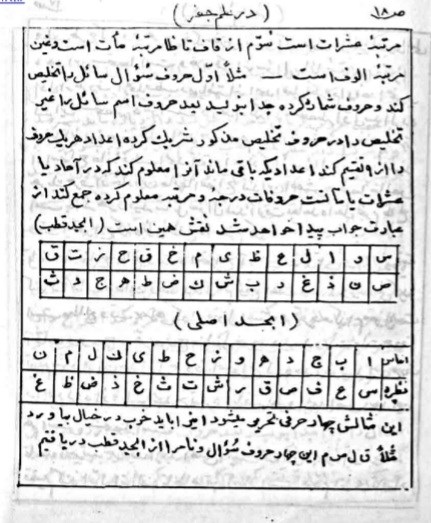 ص۱۸ (در علم جفر)
مرتبهٔ عشرات است سوّم از قاف تا ظا مرتبهٔ مأت است و غین
مرتبهٔ الوف است — مثلاً اوّل حروف سؤال سائل را تخلیص
کند و حروف شماره کرده جدا بنویسد بعد حروف اسم سائل را غیر
تخلیص داد در حروف تخلیص مذکور شریک کرده اعداد هر یک حروف
را از ۹ تقسیم کند اعدادیکه باقی ماند آنرا معلوم کند که در آحاد یا
عشرات یا مآت حروفات درجه و مرتبه معلوم کرده جمع کند از
عبارت جواب پیدا خواهد شد نقش همین است (ابجد قطب)
س و ا ل ع ظ ی م خ ق ح ز ت ق
ص ن ذ غ د ب ش ک ض ط ه ج د ث
(ابجد اصلی)
اساس ا ب ج د ه و ز ح ط ی ک ل م ن
نظیره س ع ف ص ق ر ش ت ث خ ذ ض ظ غ
این مثالش چهار حرفی تحریر میشود اینرا باید خوب در خیال بیاورد
مثلاً ق ل م این چهار حروف سؤال و نامرا از ابجد قطب دریافتیم